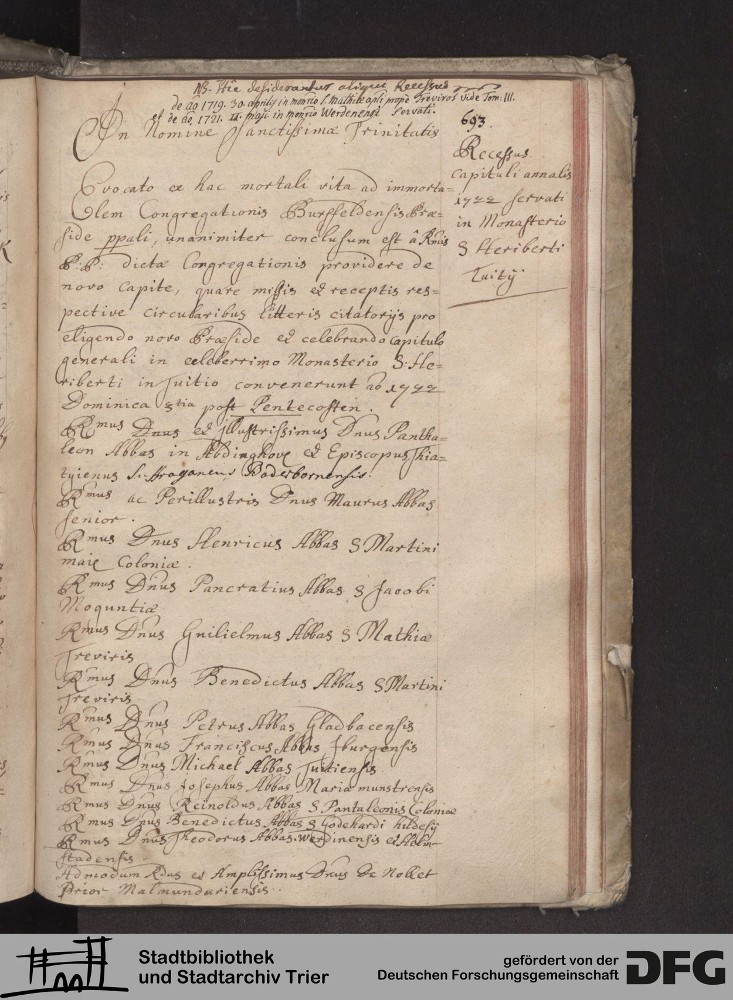 NB. Hic desiderantur aliqui Recessus
de ao 1719. 30 aprilis in mon̄rio S. Mathiæ apli prope Treviros vide Tom: III.
et de ao. 1721. 11. maji in mon̄rio Werdenensi servati.
693.
In Nomine Sanctissimæ Trinitatis
Recessus
capituli annalis
1722 servati
in Monasterio
S Heriberti
Tuitÿ
Evocato ex hac mortali vita ad immorta=
lem Congregationis Bursfeldensis Præ=
side ppali, unanimiter conclusum est â Rmis
P: P: dictæ Congregationis providere de
novo capite, quare missis et receptis res=
pective circularibus litteris citatorijs pro
eligendo novo Præside et celebrando capitulo
generali in celeberrimo Monasterio S: He=
riberti in Tuitio convenerunt ao 1722
Dominica 3tia post Pentecosten.
Rmus Dnus et jllustrissimus Dnus Pantha=
leon Abbas in Abdinghove et Episcopus Thia=
tyienus Suffraganeus Paderbornensis.
Rmus ac Perillustris Dnus Maurus Abbas
senior.
Rmus Dnus Henricus Abbas S Martini
maie Coloniæ.
Rmus Dnus Pancratius Abbas S Jacobi
Moguntiæ
Rmus Dnus Guilielmus Abbas S Mathiæ
Treviris
Rmus Dnus Benedictus Abbas S Martini
Treviris
Rmus Dnus Petrus Abbas Gladbacensis
Rmus Dnus Franciscus Abbas Jburgensis
Rmus Dnus Michael Abbas Tuitiensis
Rmus Dnus Josephus Abbas Mariæ munstrensis
Rmus Dnus Reinoldus Abbas S Pantaleonis Coloniæ
Rmus Dnus Benedictus Abbas S Godehardi hildesÿ
Rmus Dnus Theodorus Abbas Werdinensis et Helm=
stadensis
Admodum Rdus et Amplissimus Dnus De Nollet
Prior Malmundariensis.
Stadtbibliothek
und Stadtarchiv Trier
gefördert von der
Deutschen Forschungsgemeinschaft
DFG